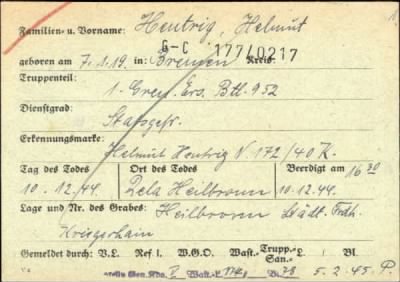 Familien- u. Vorname: Hentrig, Helmut
G-C 177/0217
geboren am 7.1.19. in: Bremen Kreis:
Truppenteil:
1. Gren. Ers. Btl. 952
Dienstgrad:
Stabsgefr.
Erkennungsmarke:
Helmut Hentrig N. 172/40 K.
Tag des Todes Ort des Todes Beerdigt am 16 30
10.12.44. Heilbronn 10.12.44.
Lage und Nr. des Grabes: Heilbronn Städt. Frdh.
Kriegerhain
Gemeldet durch: V.L. Ref I. W.G.O. Wast.- Trupp.- San.- L. Bl.
Gen. Kdo. V Wast.-L. Bl. 78 5.2.45. P.